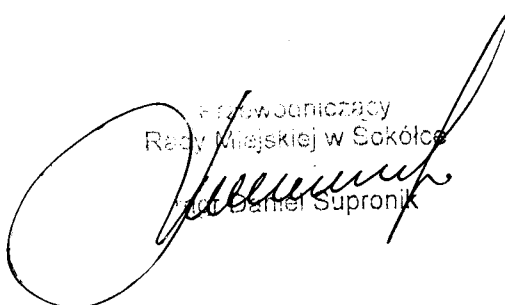 Przewodniczący
Rady Miejskiej w Sokółce
mgr Daniel Supronik